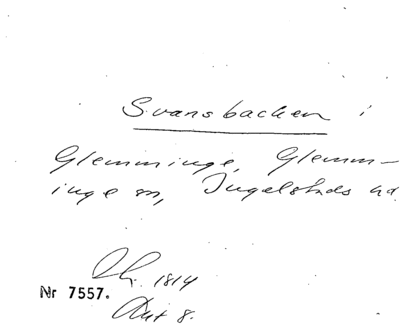 Svansbacken i
Glemminge, Glemm-
inge sn, Ingelstads hd.
1814
Nr 7557.
Akt 8.